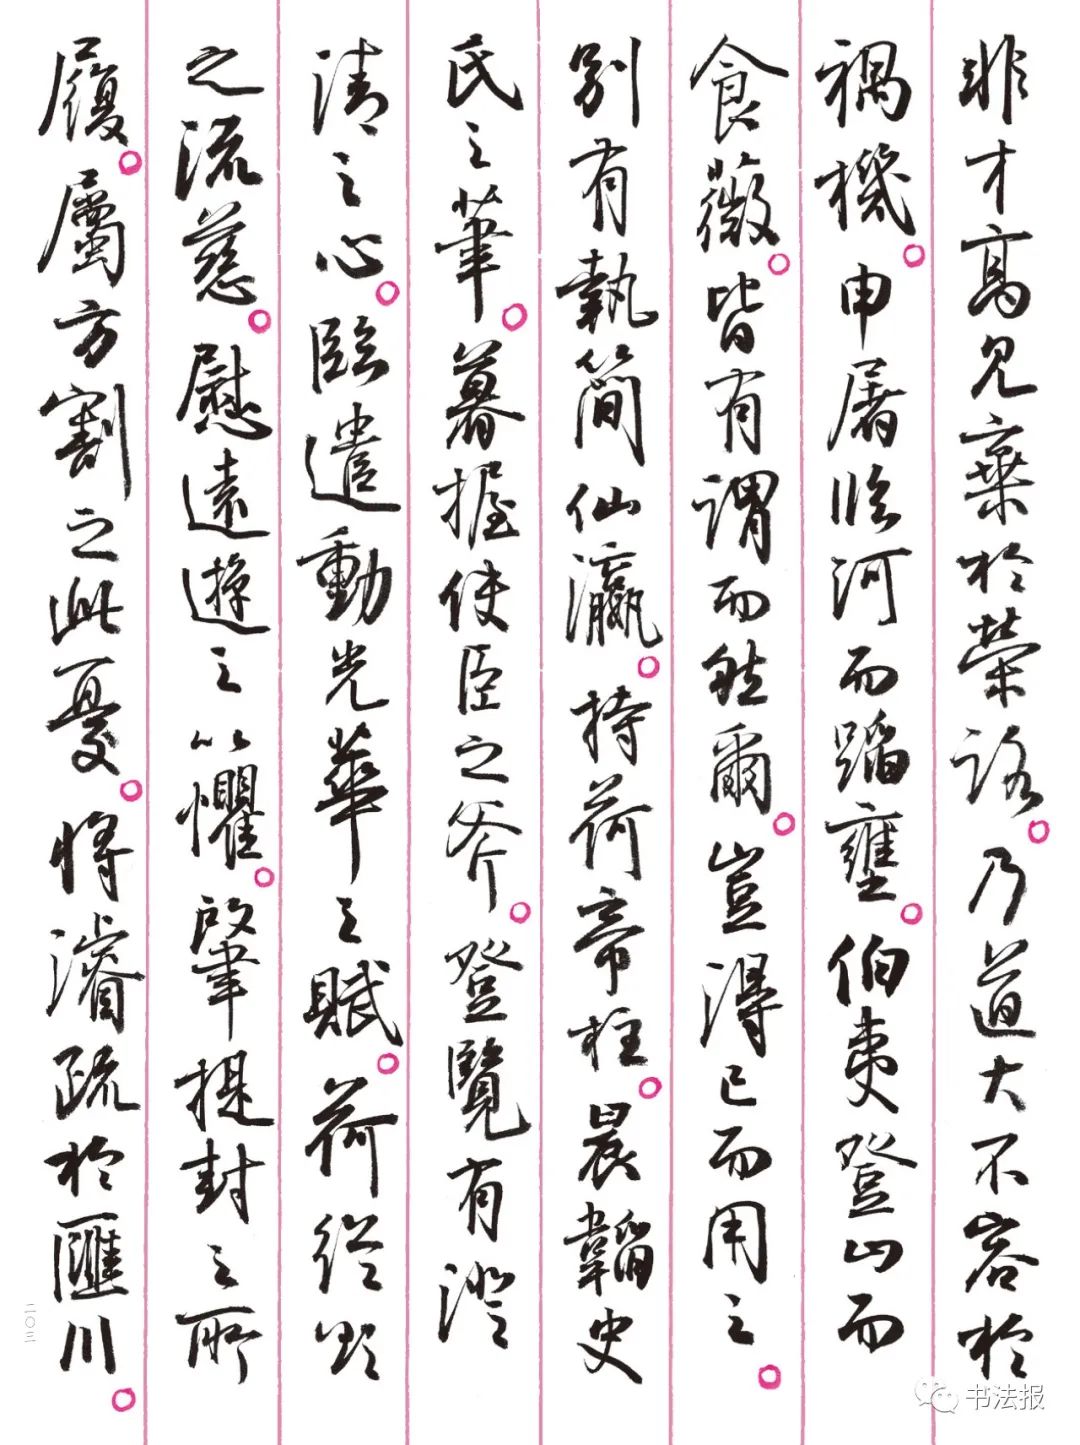 非才高見棄於榮路。乃道大不容於
禍機。申屠臨河而蹈壅。伯夷登山而
食薇。皆有謂而然爾。豈得已而用之。
別有執簡仙瀛。持荷帝柱。晨韜史
氏之筆。暮握使臣之斧。登覽有澄
清之心。臨遣動光華之賦。荷從
之流慈。慰遠遊之以懼。肇提封之所
履。屬方割之此憂。將濬疏於匯川。
二〇三
书法报